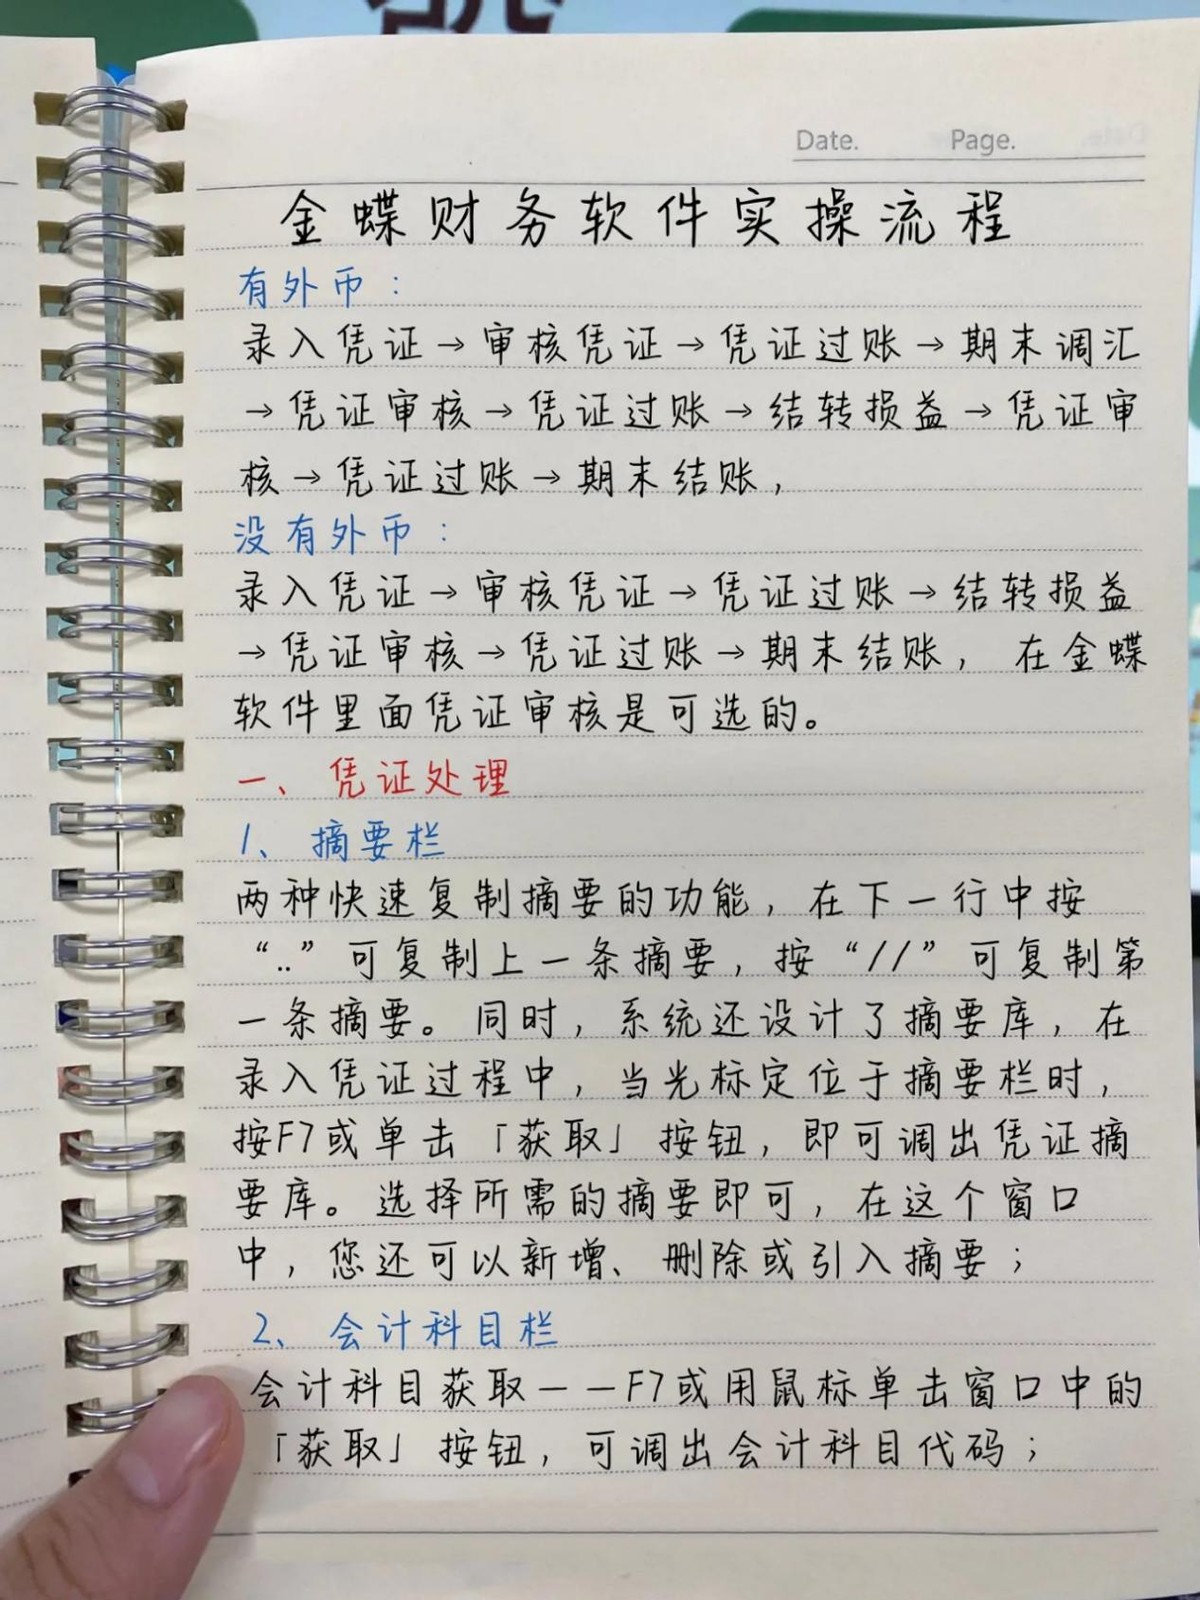 Date. Page.
金蝶财务软件实操流程
有外币：
录入凭证→审核凭证→凭证过账→期末调汇
→凭证审核→凭证过账→结转损益→凭证审
核→凭证过账→期末结账，
没有外币：
录入凭证→审核凭证→凭证过账→结转损益
→凭证审核→凭证过账→期末结账，在金蝶
软件里面凭证审核是可选的。
一、凭证处理
1、摘要栏
两种快速复制摘要的功能，在下一行中按
“..”可复制上一条摘要，按“//”可复制第
一条摘要。同时，系统还设计了摘要库，在
录入凭证过程中，当光标定位于摘要栏时，
按F7或单击「获取」按钮，即可调出凭证摘
要库。选择所需的摘要即可，在这个窗口
中，您还可以新增、删除或引入摘要；
2、会计科目栏
会计科目获取——F7或用鼠标单击窗口中的
「获取」按钮，可调出会计科目代码；